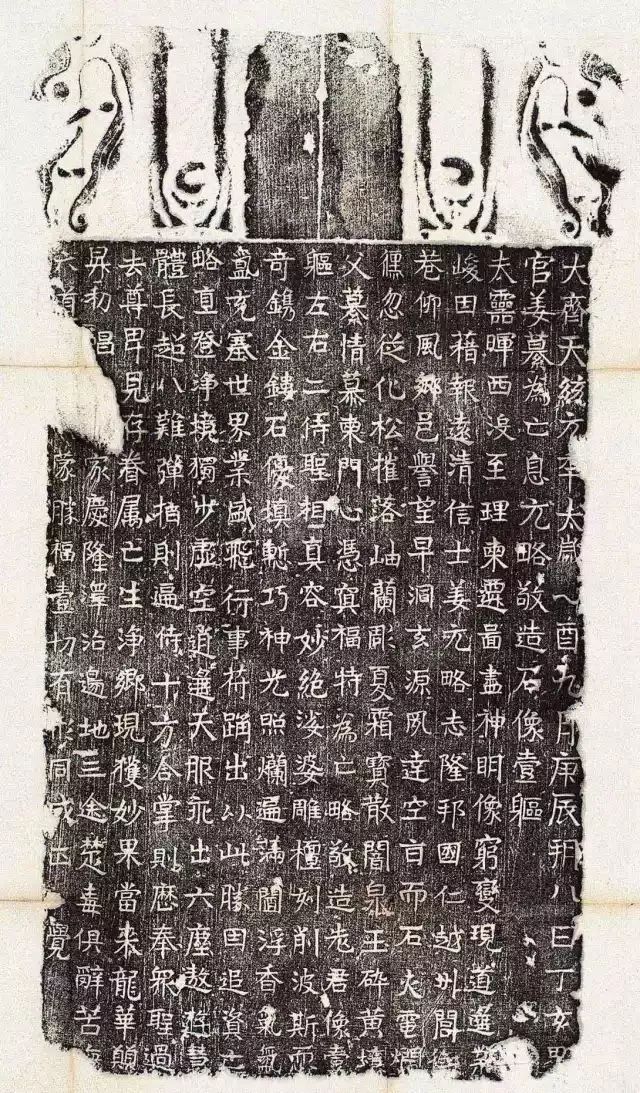 大齊天統元年太歲乙酉九月庚辰朔八日丁亥
官姜纂為亡息元略敬造石像壹軀
夫靈暉西沒至理東遷啚盡神明像窮變現道遙
峻因藉報遠清信士姜元略志隆邦國仁越州閭
巷仰風鄉邑譽望早洞玄源夙達空旨而石火電燗
儵忽從化松摧落岫蘭彫夏霜寶散闇泉玉碎黃壤
父纂情慕東門心憑冥福特為亡略敬造老君像壹
軀左右二侍聖相真容妙絕娑婆雕檀刻削波斯而
奇鐫金鏤石優填慙巧神光照爛遍滿閻浮香氣氳
盒充塞世界業盛飛行事符踊出以此勝因追資亡
略直登淨境獨步虛空逍遙天服乖出六塵遨遊慧
體長超八難彈指則遍侍十方合掌則歷奉眾聖過
去尊卑見存眷属亡生淨鄉現獲妙果當來龍華願
昇初唱 家慶隆澤洽邊地三途楚毒俱辭苦海
蒙勝福壹切有 同成正覺